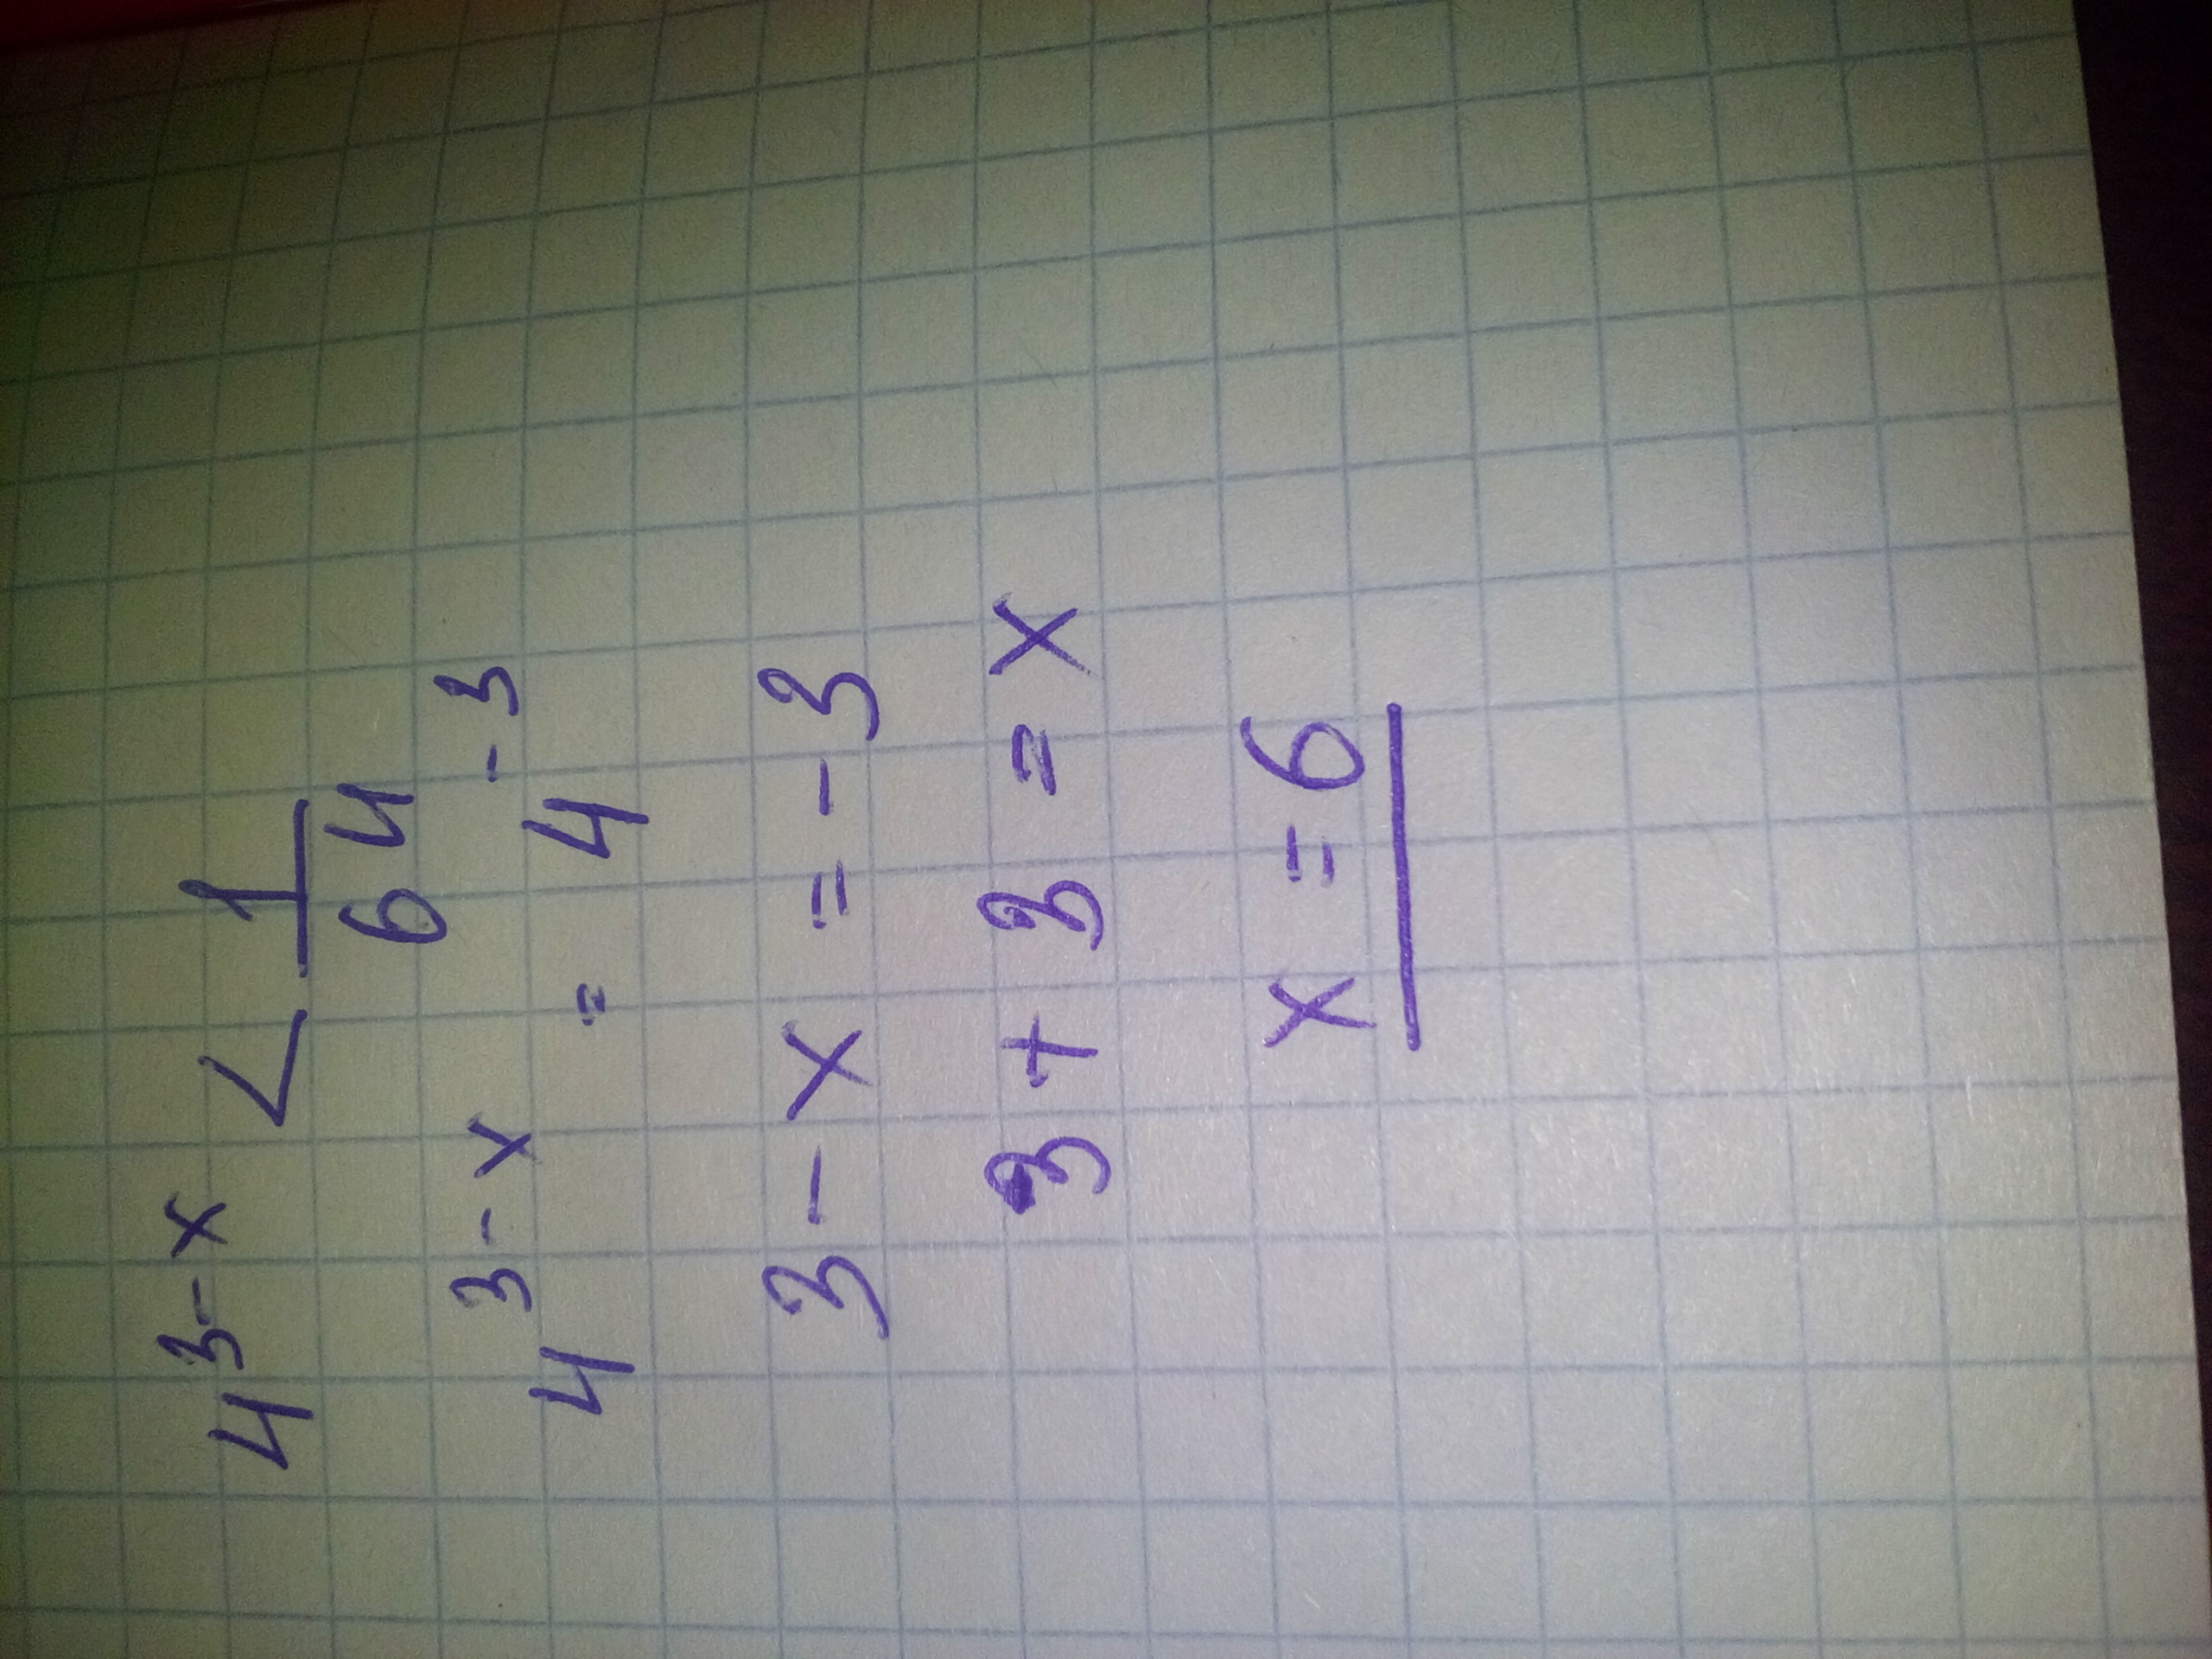 4^{3-x} < \frac{1}{64}
4^{3-x} = 4^{-3}
3 - x = -3
3 + 3 = x
x = 6